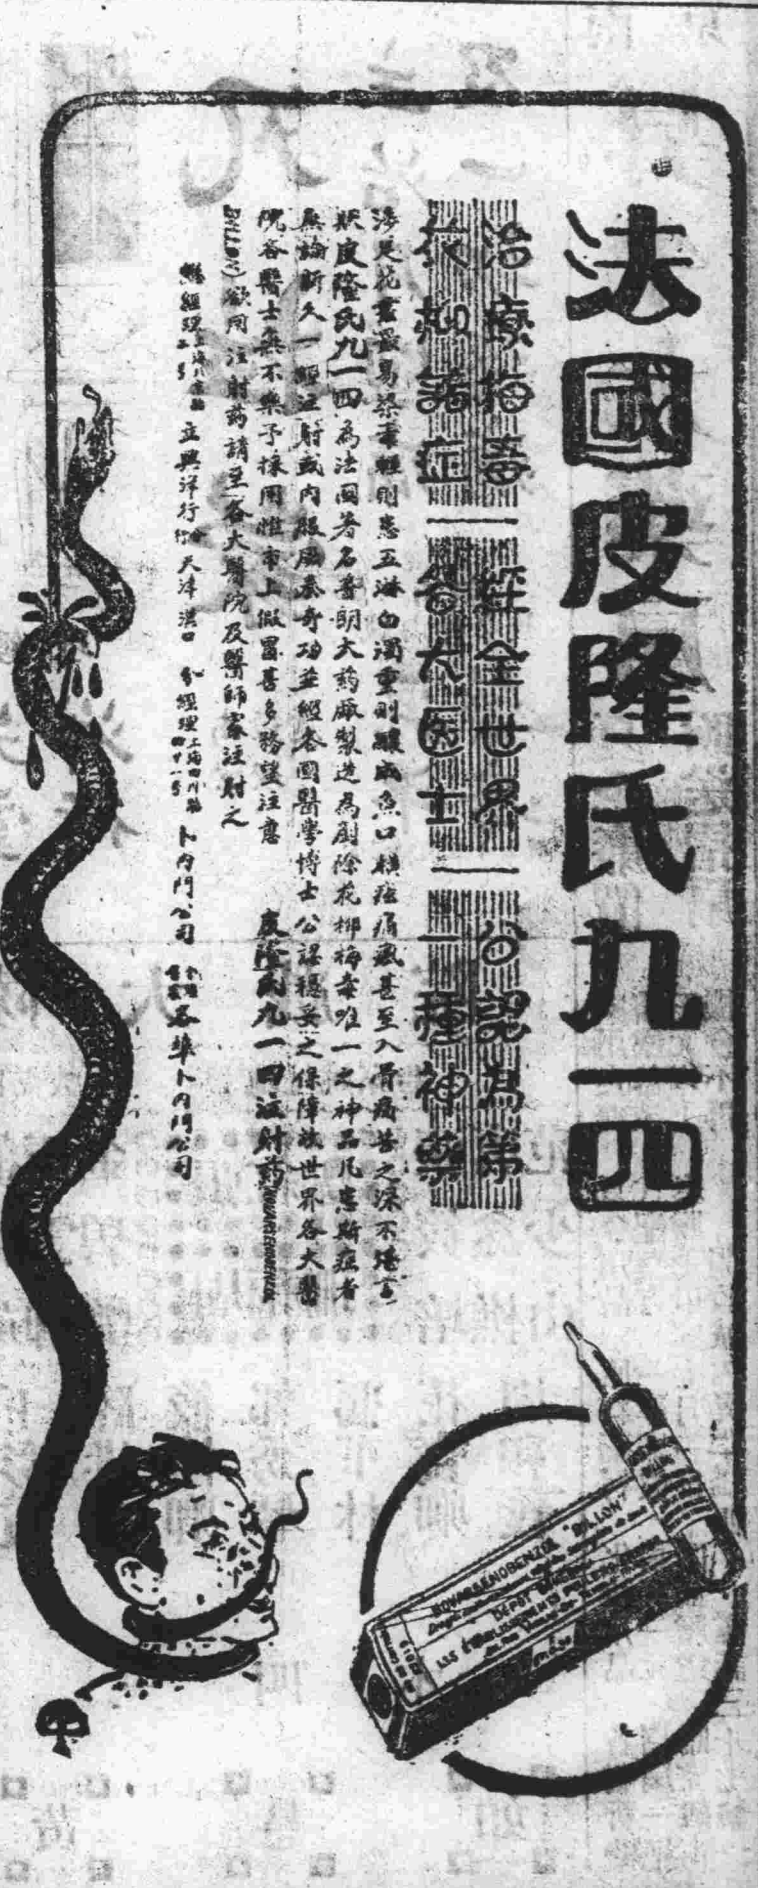 法國皮隆氏九一四
治療梅毒 經全世界 公認為第
花柳諸症 各大醫士 一種神藥
涉足花叢最易染毒輕則患五淋白濁重則釀成魚口橫痃瘡瘋甚至入骨痛苦之深不堪言
狀皮隆氏九一四為法國著名普朗大藥廠製造為剷除花柳梅毒唯一之神品凡患斯症者
無論新久一經注射或內服屢奏奇功並經各國醫學博士公認穩妥之保障故世界各大醫
院各醫士無不樂予採用惟市上假冒甚多務望注意 皮隆氏九一四注射葯(NOVARSENOBENZOL
BILLON)欲用注射葯請至各大醫院及醫師家注射之
總經理 立興洋行 分行天津漢口 分經理上海四川路四十一號 卜內門公司 各埠卜內門公司
NOVARSENOBENZOL "BILLON"
DEPOT GENERAL
LES ETABLISSEMENTS POULENC